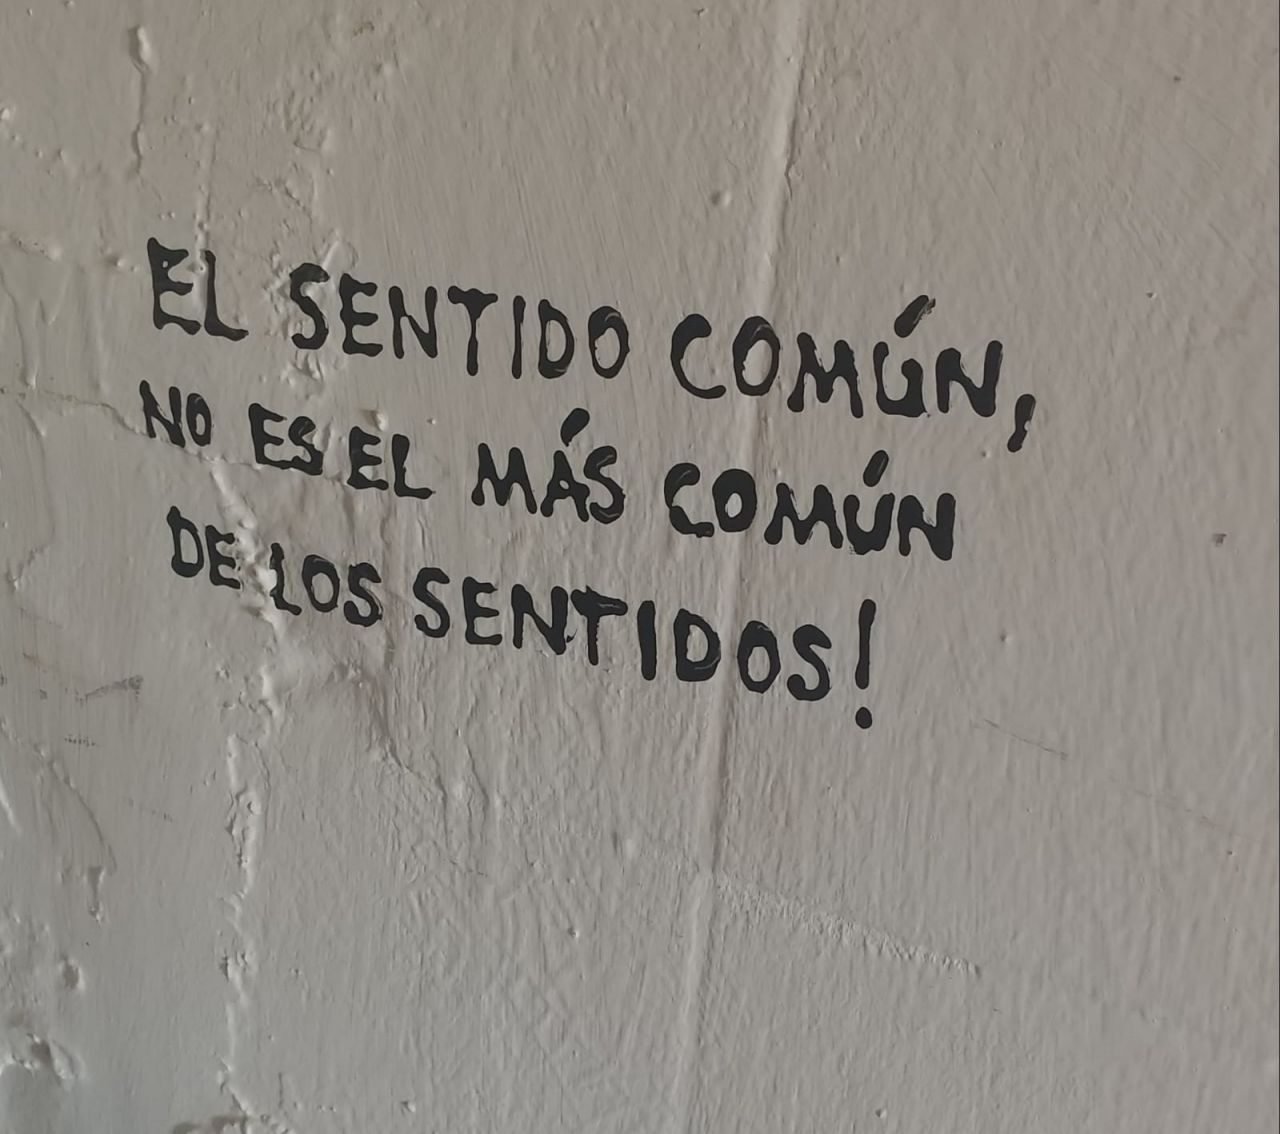 EL SENTIDO COMÚN,
NO ES EL MÁS COMÚN
DE LOS SENTIDOS!